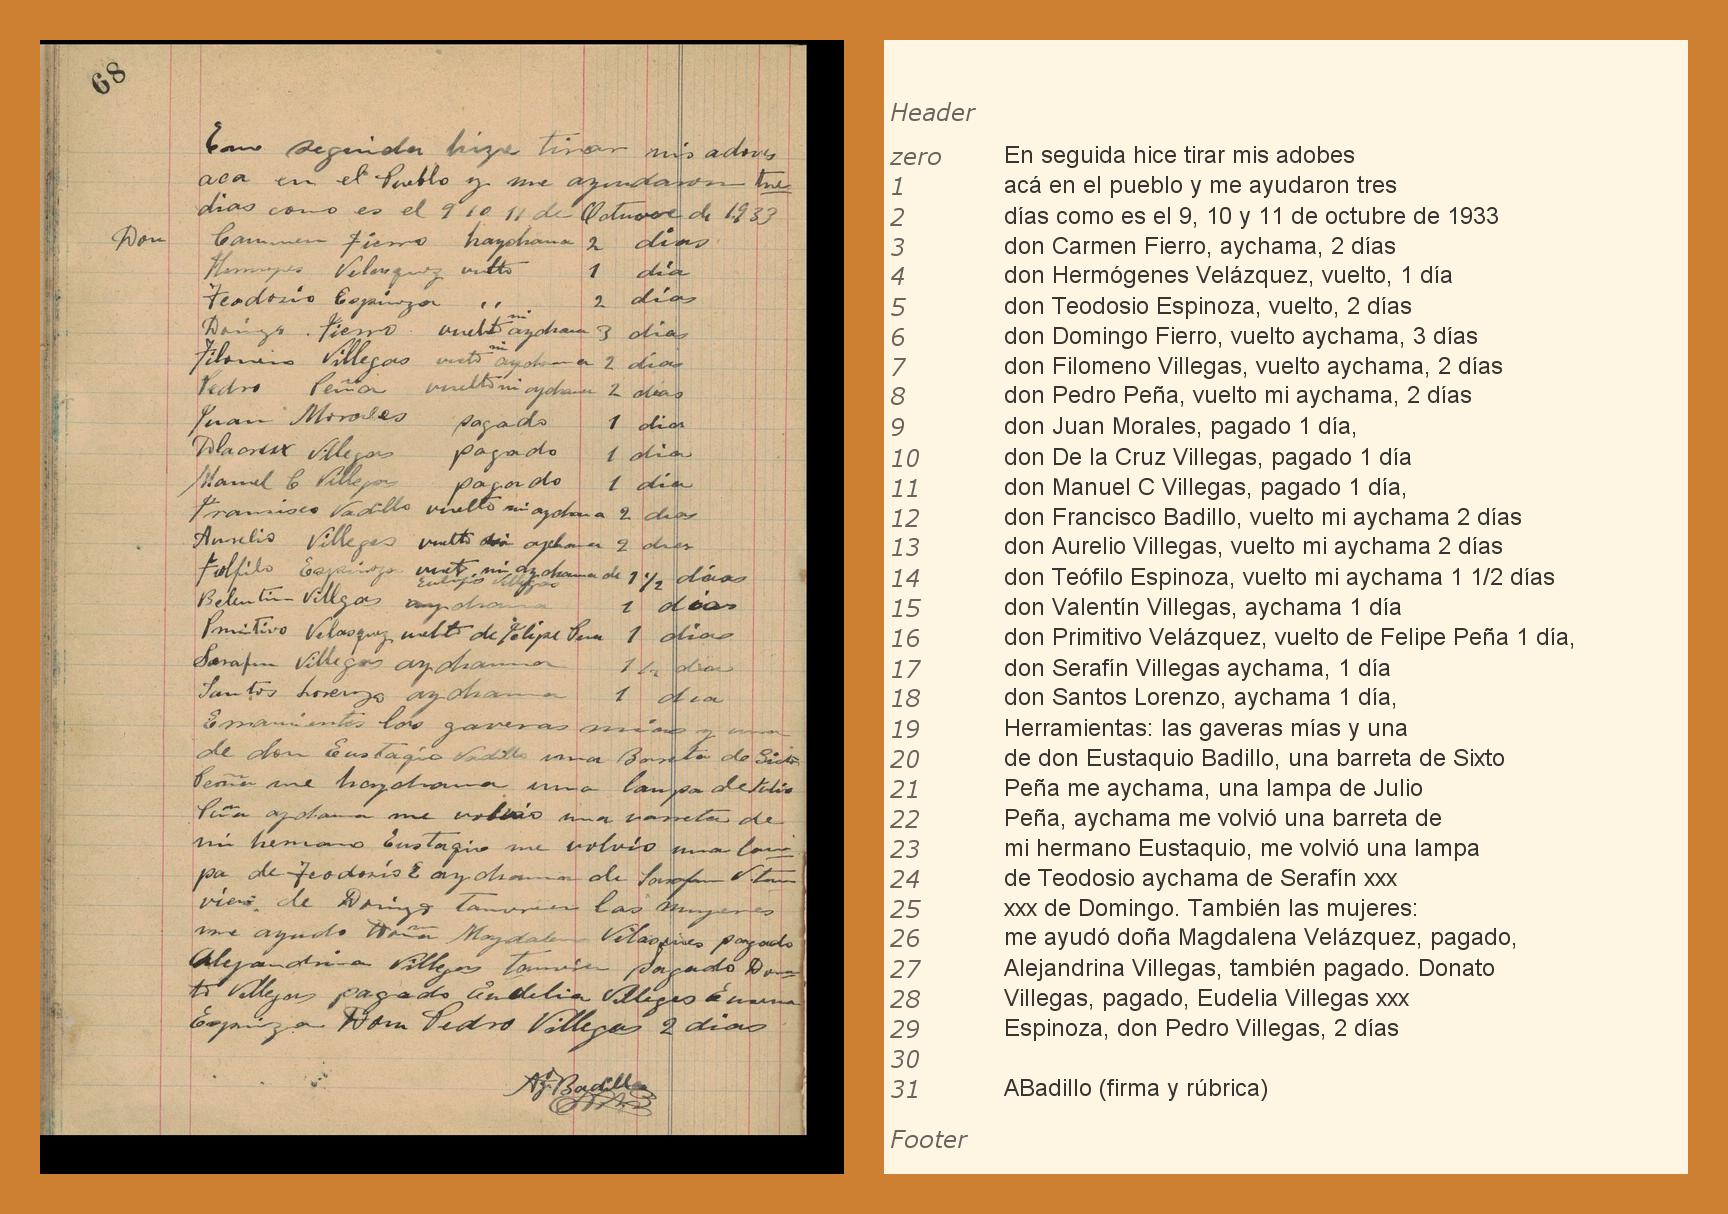 68
En seguida hize tirar mis adoves
aca en el Pueblo y me ayudaron tres
dias como es el 9 10 11 de Octuvre de 1933
Don Carmen Fierro haychama 2 días
Velasquez vuelto 1 día
Teodosio Espinoza ,, 2 días
Doingo Fierro vuelto mi aychama 3 días
Filomeno Villegas vuelto mi aychama 2 días
Pedro Peña vuelto mi aychama 2 días
Juan Morales pagado 1 dia
Dlacrux Villegas pagado 1 dia
Manuel C Villegas pagado 1 día
Francisco Vadillo vuelto mi aychama 2 dias
Aurelio Villegas vuelto mi aychama 2 dias
Espinoza vuelto mi aychama de 1 1/2 días
Villegas
Belentin Villegas aychama 1 días
Pmitivo Velasquez vuelto de Felipe Peña 1 días
Serafin Villegas aychama 1 1/2 dia
Santos Lorenzo aychama 1 dia
las gaveras mías y una
de don Eustaqio Vadillo una Barreta de Sixto
Peña me haychama una lampa de Julio
Peña aychama me volvió una varreta de
mi hermano Eustaqio me volvio una lam
pa de Teodosio E aychama de Serafin V. tan
vien de Doingo tanvien las mugeres
me ayudo Doña Magdalena Velasques pagado
Alejandrina Villegas tanvien pagado Don
to Villegas pagado Eudelia Villegas
Espinoza Don Pedro Villegas 2 dias
ABadillo
Header
zero En seguida hice tirar mis adobes
1 acá en el pueblo y me ayudaron tres
2 días como es el 9, 10 y 11 de octubre de 1933
3 don Carmen Fierro, aychama, 2 días
4 don Hermógenes Velázquez, vuelto, 1 día
5 don Teodosio Espinoza, vuelto, 2 días
6 don Domingo Fierro, vuelto aychama, 3 días
7 don Filomeno Villegas, vuelto aychama, 2 días
8 don Pedro Peña, vuelto mi aychama, 2 días
9 don Juan Morales, pagado 1 día,
10 don De la Cruz Villegas, pagado 1 día
11 don Manuel C Villegas, pagado 1 día,
12 don Francisco Badillo, vuelto mi aychama 2 días
13 don Aurelio Villegas, vuelto mi aychama 2 días
14 don Teófilo Espinoza, vuelto mi aychama 1 1/2 días
15 don Valentín Villegas, aychama 1 día
16 don Primitivo Velázquez, vuelto de Felipe Peña 1 día,
17 don Serafín Villegas aychama, 1 día
18 don Santos Lorenzo, aychama 1 día,
19 Herramientas: las gaveras mías y una
20 de don Eustaquio Badillo, una barreta de Sixto
21 Peña me aychama, una lampa de Julio
22 Peña, aychama me volvió una barreta de
23 mi hermano Eustaquio, me volvió una lampa
24 de Teodosio aychama de Serafín xxx
25 xxx de Domingo. También las mujeres:
26 me ayudó doña Magdalena Velázquez, pagado,
27 Alejandrina Villegas, también pagado. Donato
28 Villegas, pagado, Eudelia Villegas xxx
29 Espinoza, don Pedro Villegas, 2 días
30
31 ABadillo (firma y rúbrica)
Footer